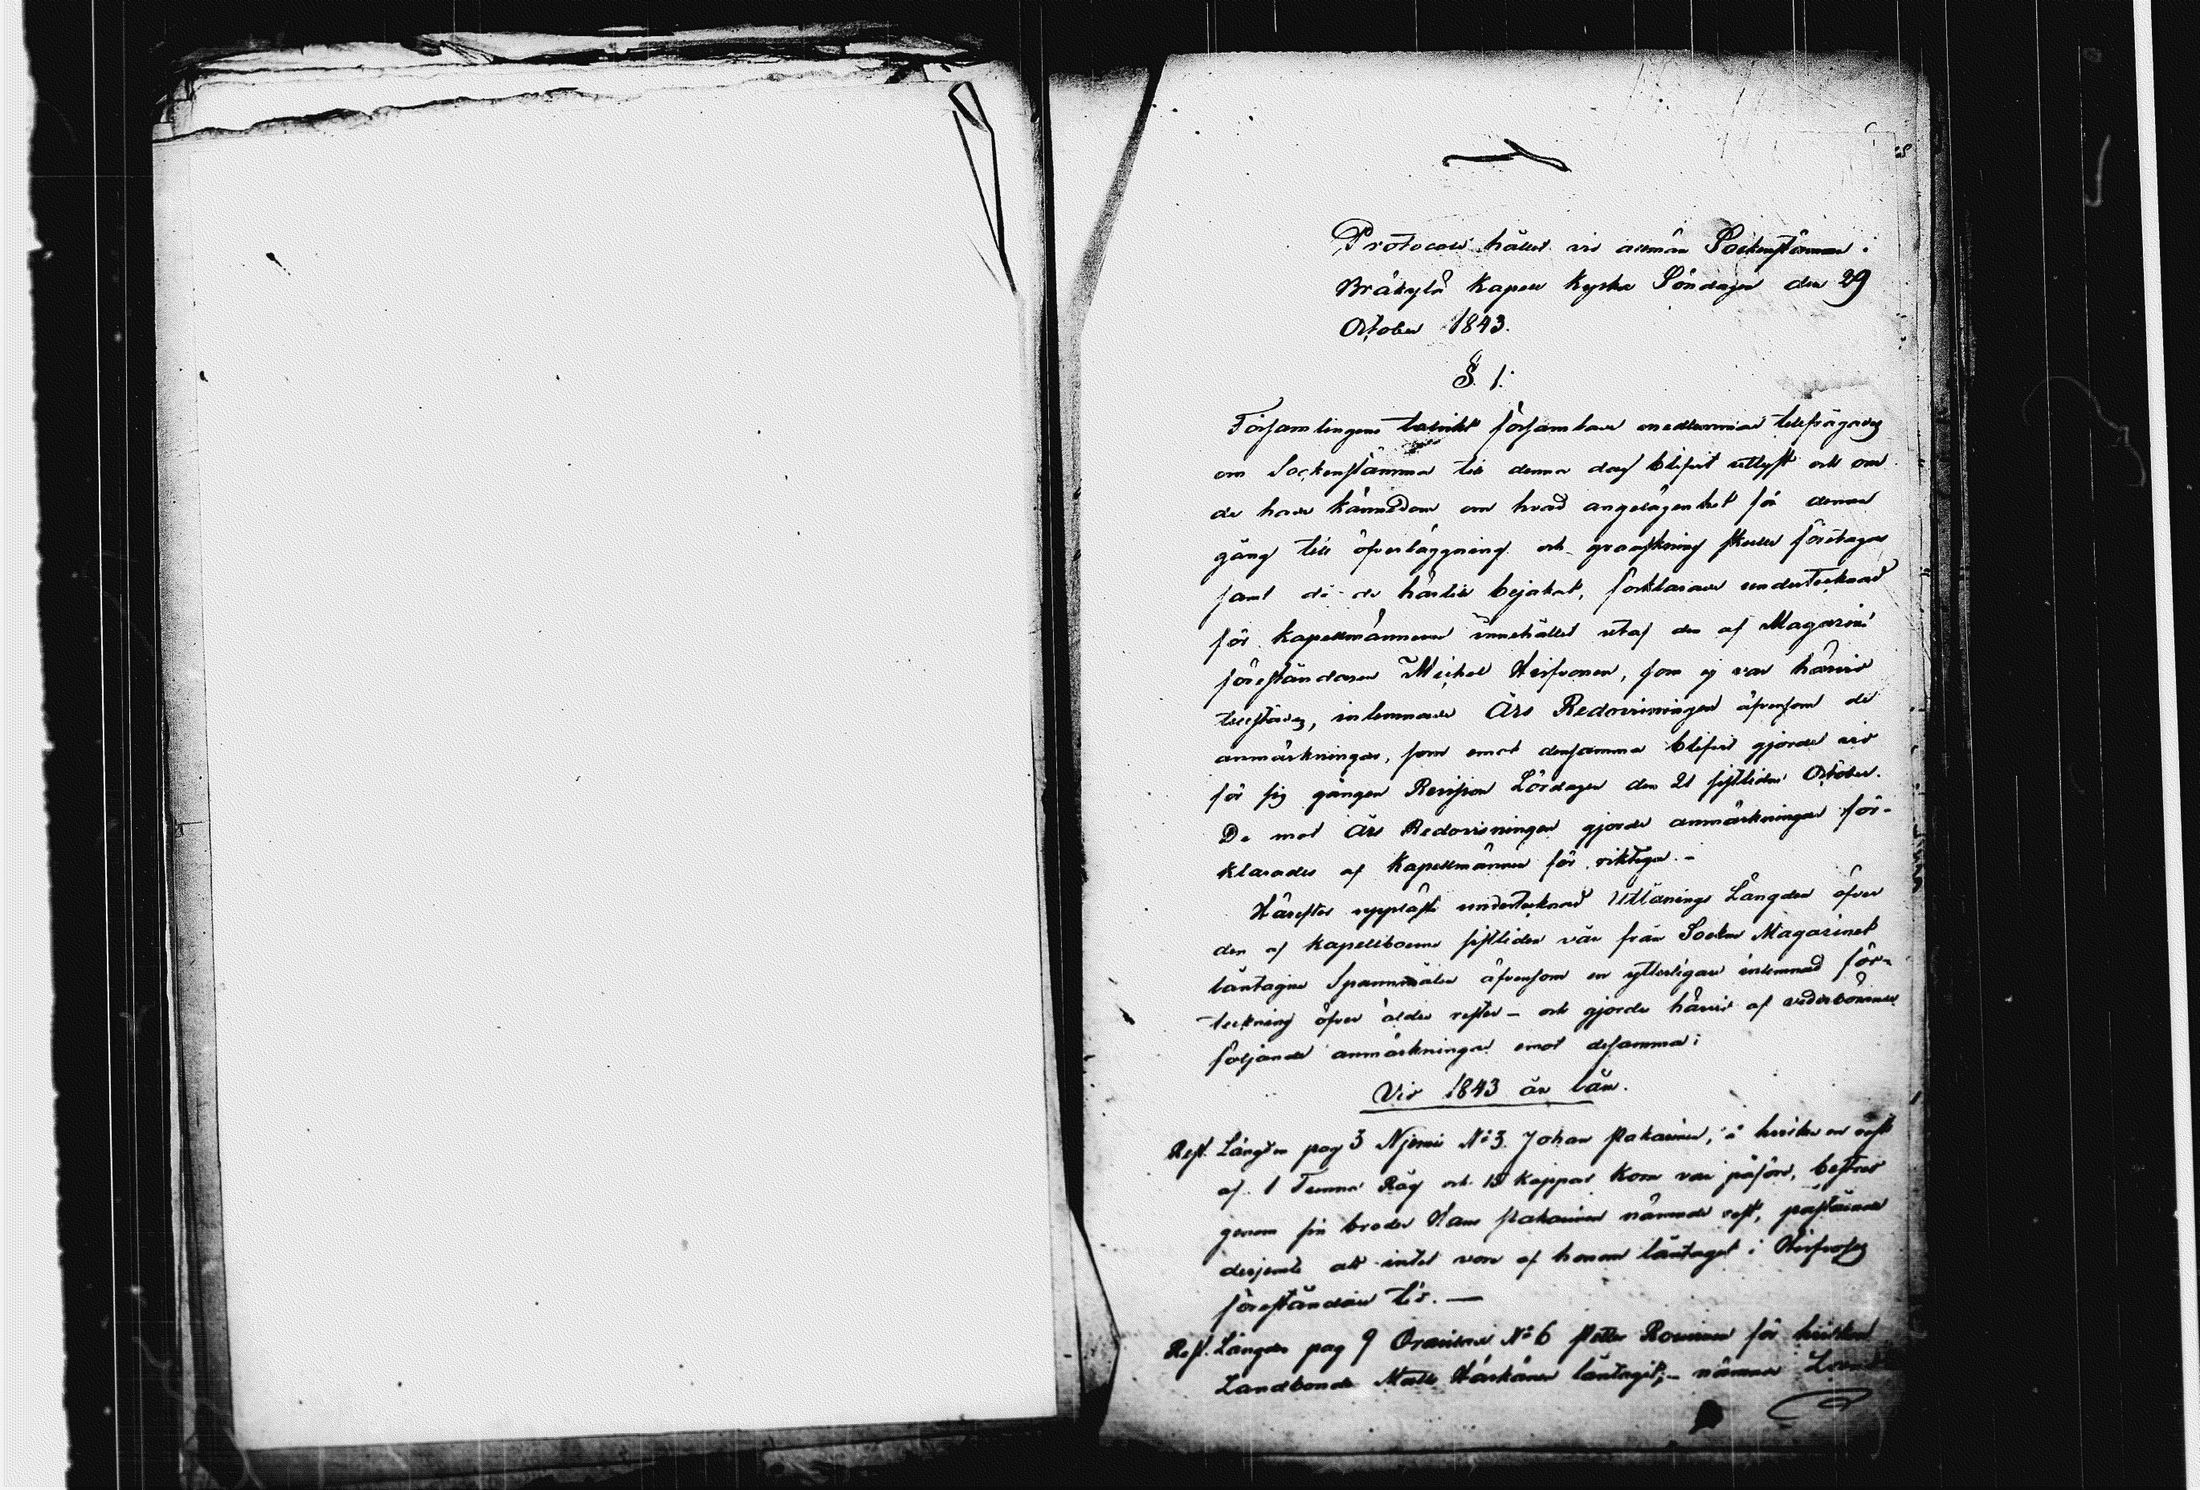 Protocoll hållet vid allmän Sockenstämma i
Bräkylä Kapell Kyrka Söndagen den 29
October 1843.
§. 1.
Församlingens talrikt församlade medlemmar tillfrågades
om Sockenstämma till denna dag blifvit utlyst och om
de hade kännedom om hvad angelägenhet för denna
gång till öfverläggning och granskning skulle företagas
samt då de härtill bejakat, förklarade undertecknad
för Kapellmännerne innehållet utaf den af Magazins
föreståndaren Michel Hirfvonen, som ej var härvid
tillstädes, inlemnade Års Redovisningen äfvensom de
anmärkningar, som emot densamma blifvit gjorde vid
för sig gången Revision Lördagen den 21 sistliden October.
De mot Års Redovisningen gjorde anmärkningar för-
klarades af Kapellmännen för riktiga. -
Härefter uppläste undertecknad Utlånings Längden öfver
den af Kapellboerne sistliden vår från Socken Magazinet
låntagne Spannmålen äfvensom en ytterligare inlemnad för-
teckning öfver äldre rester - och gjorde härvid af vederbörande
följande anmärkningar emot desamma:
Vid 1843 års lån.
Rest. Längden pag 3 Njemis No 3. Johan Pakarinen, å hvilken en rest
af 1 Tunna Råg och 15 Kappar Korn var påförd, bestred
genom sin broder Hans Pakarinen nämnde rest, påstående
derjemte att intet vore af honom låntaget i Hirfvosens
föreståndare tid. —
Rest. Längden pag 9 No 6 Petter Rouvinen för hvilken
Landbonde Matts Härkönen låntagit; - nämnde